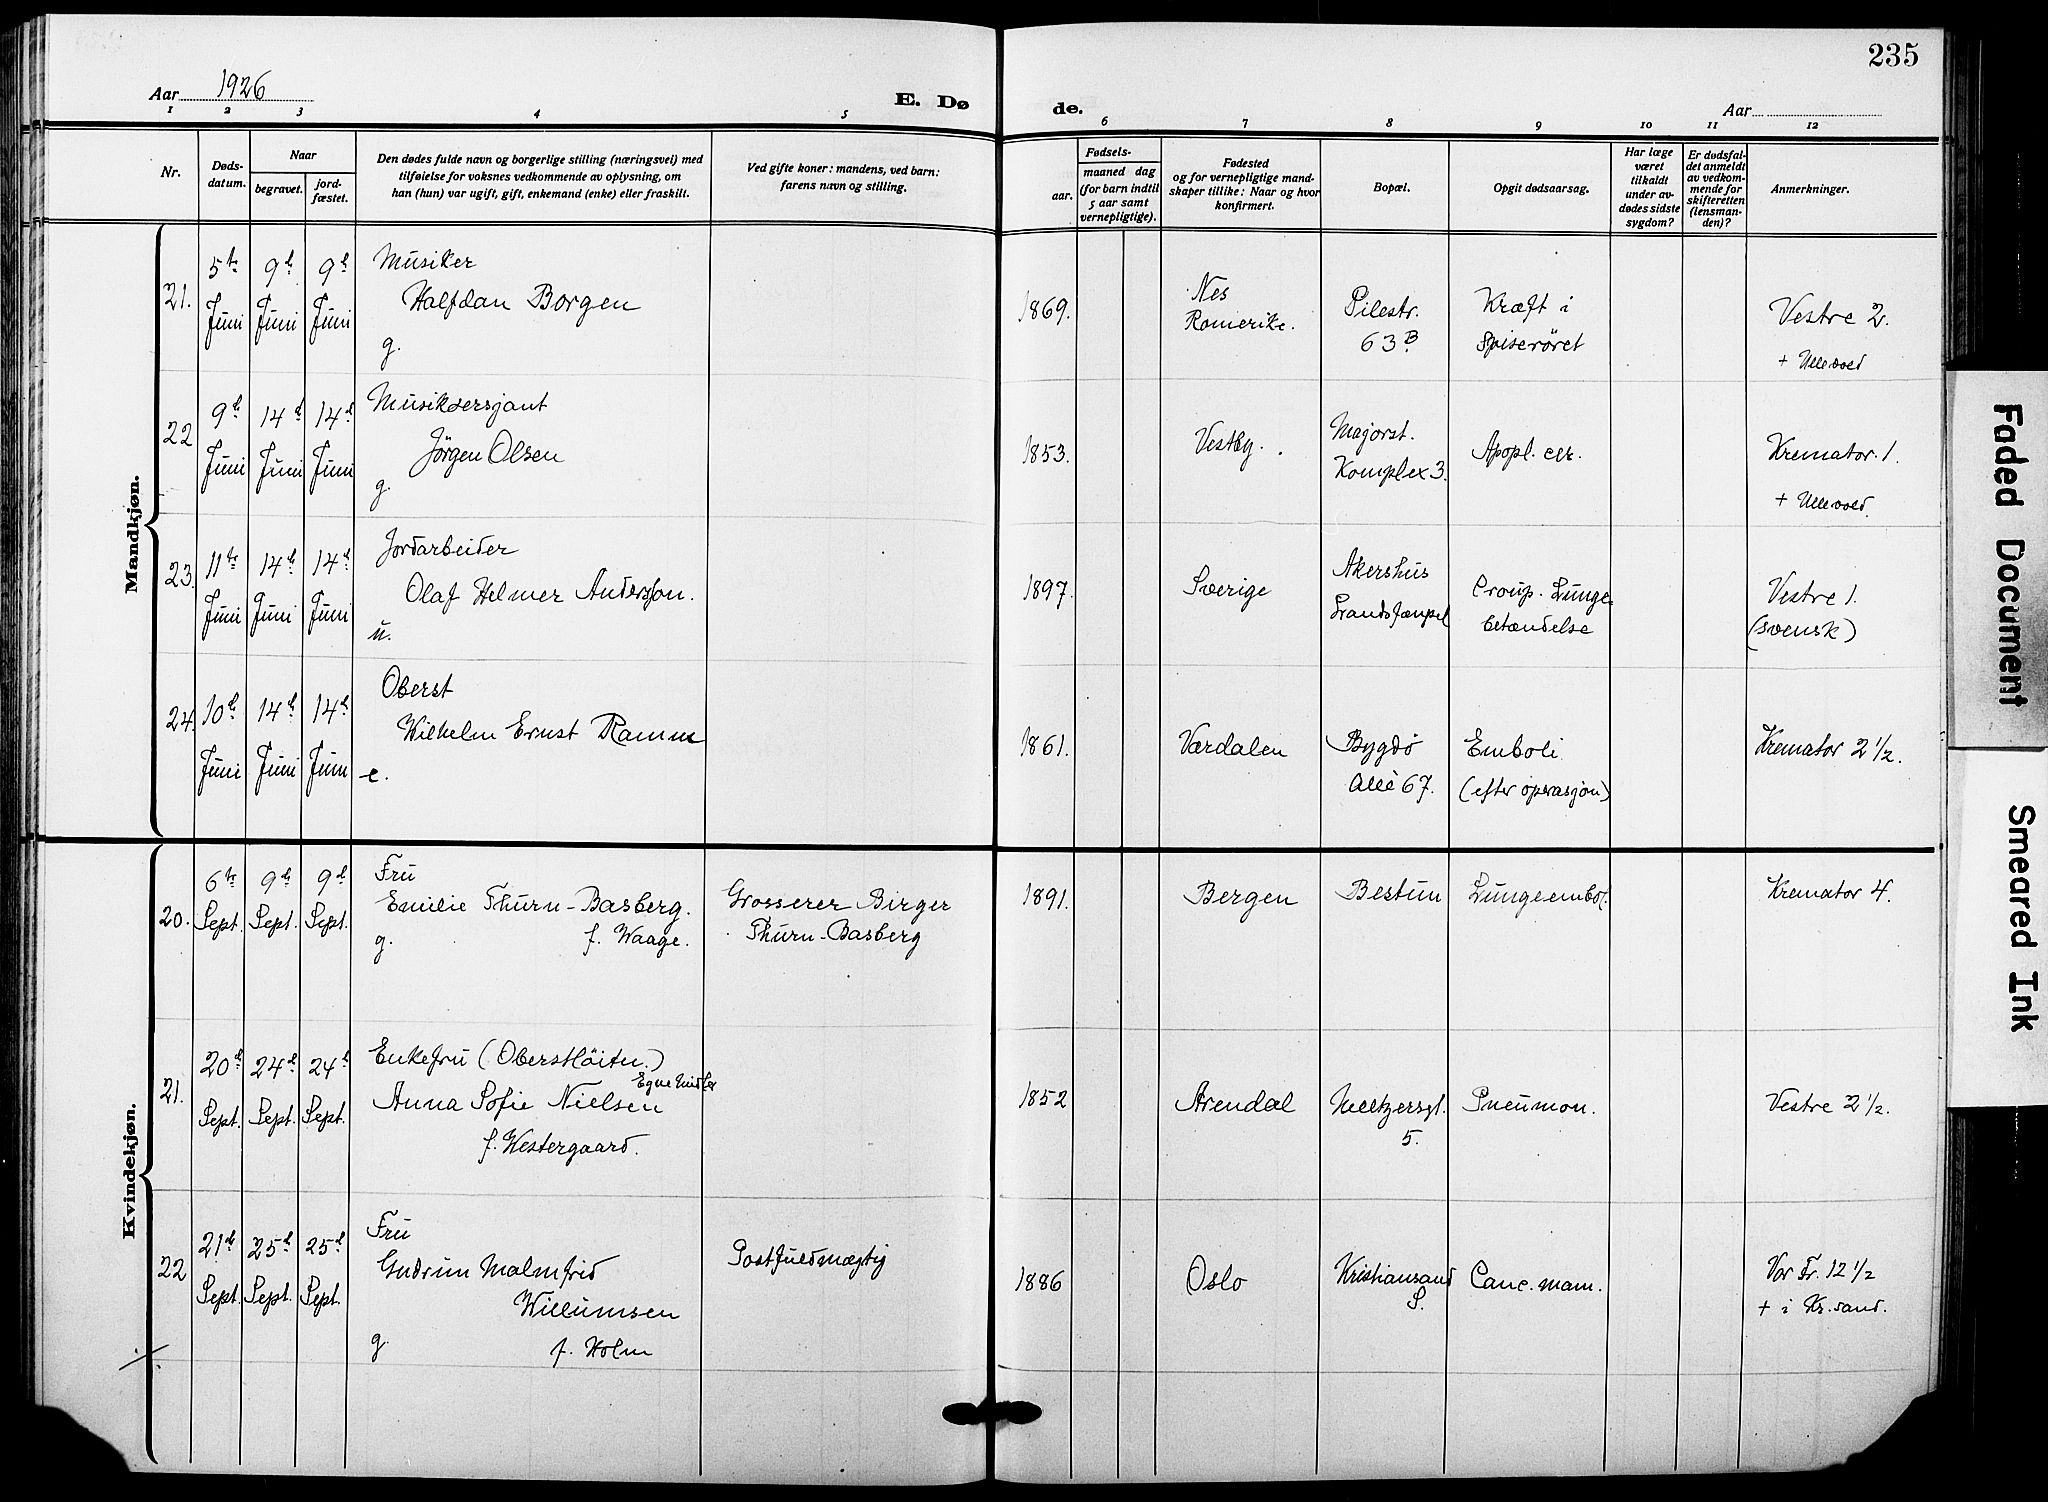 235
Aar 1926
E. Dø de.
Aar
1 2 3 4 5 6 7 8 9 10 11 12
Nr.
Døds-
datum.
Naar
begravet.
jord-
fæstet.
Den dødes fulde navn og borgerlige stilling (næringsvei) med
tilføielse for voksnes vedkommende av oplysning, om
han (hun) var ugift, gift, enkemand (enke) eller fraskilt.
Ved gifte koner: mandens, ved barn:
farens navn og stilling.
Fødsels-
aar.
maaned dag
(for barn indtil
5 aar samt
vernepligtige).
Fødested
og for vernepligtige mand-
skaper tillike: Naar og hvor
konfirmert.
Bopæl.
Opgit dødsaarsag.
Har læge
været
tilkaldt
under av-
dødes sidste
sygdom?
Er dødsfal-
det anmeldt
av vedkom-
mende for
skifteretten
(lensman-
den)?
Anmerkninger.
Mandkjøn.
21.
5te Juni
9de Juni
9de Juni
Musiker
Halfdan Borgen
g.
1869.
Nes
Romerike.
Pilestr.
63B.
Kræft i
Spiserøret
Vestre 2.
+ Ullevold
22
9de Juni
14de Juni
14de Juni
Musiksersjant
Jörgen Olsen
g.
1853.
Vestby.
Majorst.
Komplex 3.
Apopl. cer.
Kremator. 1.
+ Ullevold.
23.
11te Juni
14de Juni
14de Juni
Jordarbeider
Olaf Helmer Andersson.
u.
1897.
Sverige
Akershus
Landsfængsel
Croup. Lunge-
betændelse
Vestre 1.
(svensk)
24.
10de Juni
14de Juni
14de Juni
Oberst
Wilhelm Ernst Ramm
e.
1861.
Værdalen
Bygdö
Allé 67.
Emboli
(efter operasjon)
Kremator 2 1/2.
Kvindekjøn.
20.
6te Sept.
9de Sept.
9de Sept.
Fru
Emilie Thurn-Basberg.
g. f. Waage.
Grosserer Birger
Thurn-Basberg
1891.
Bergen
Bestum
Lungeembol.
Kremator 4.
21.
20de Sept.
24de Sept.
24de Sept.
Enkefru (Oberstlöitn.)
Egne midler
Anna Sofie Nielsen
f. Westergaard.
1852
Arendal
Meltzersgt.
5.
Pneumon.
Vestre 2 1/2.
22
21de Sept.
25de Sept.
25de Sept.
Fru
Gudrun Malmfrid
Willumsen
g f. Holm
Postfuldmægtig
1886
Oslo
Kristiansand
S.
Canc. mam.
Vor Fr. 12 1/2
+ i Kr.sand.
Faded Document
Smeared Ink